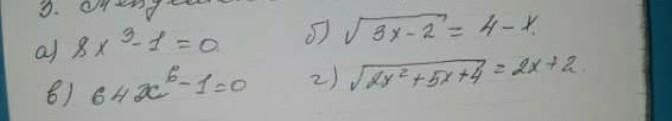 3.
а) 8x³-1=0
б) √3x-2 = 4-x.
в) 64x⁶-1=0
г) √2x²+5x+4 = 2x+2.